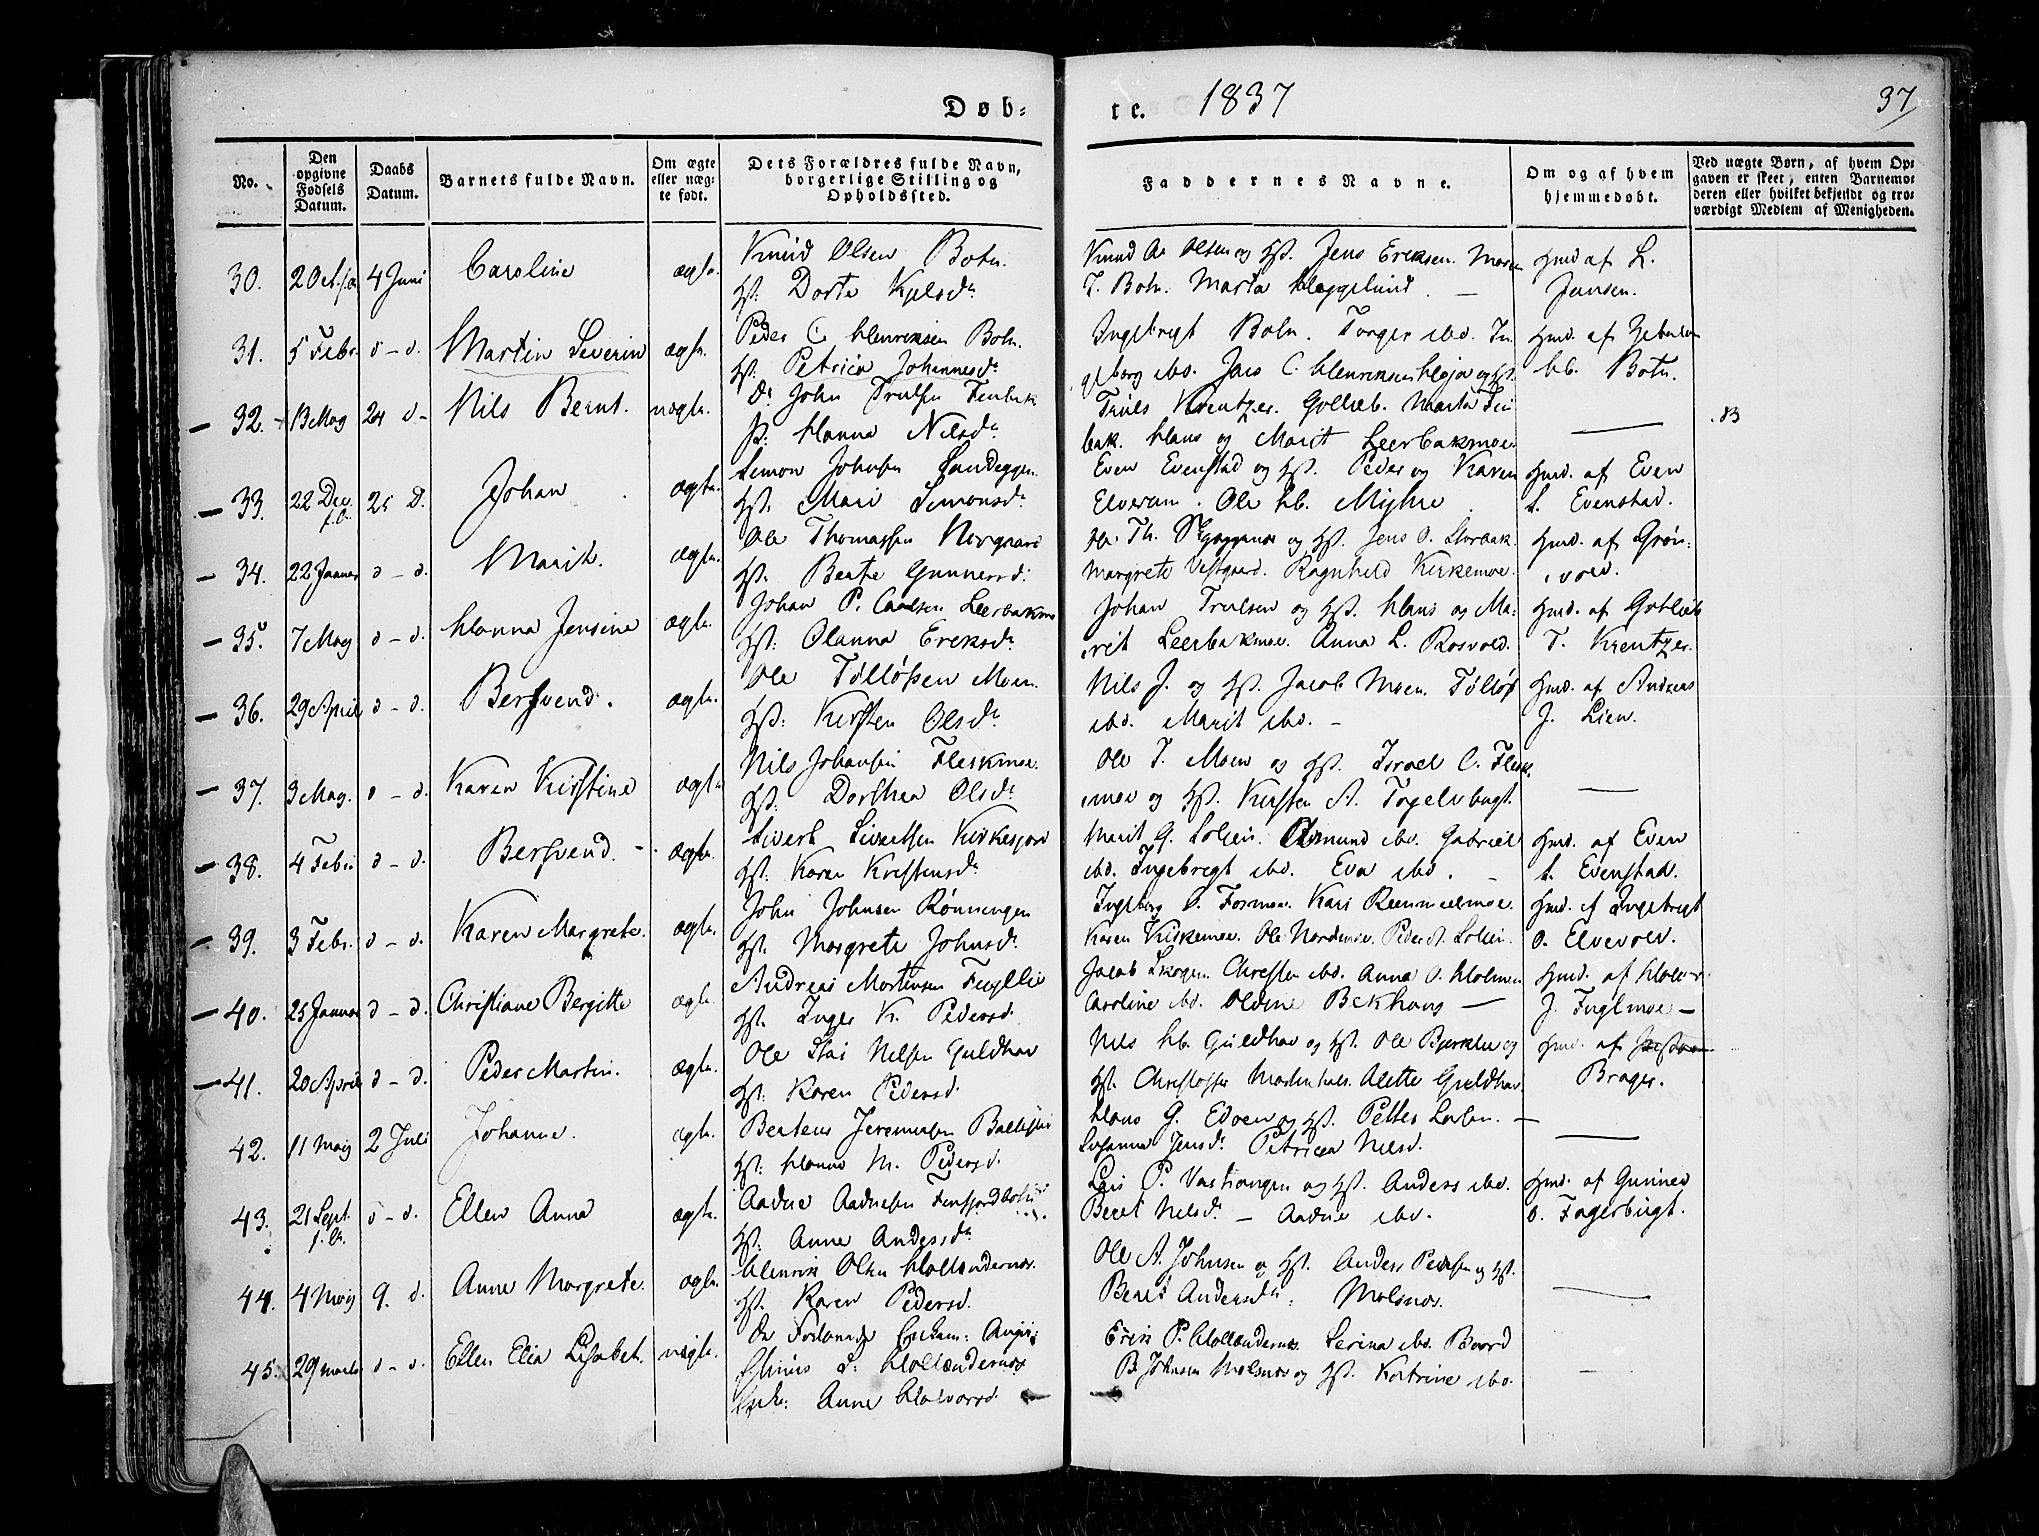 Døb-
te.
1837
37
No.
Den opgivne Fødsels Datum.
Daabs Datum.
Barnets fulde Navn.
Om ægte eller uægte født.
Dets Forældres fulde Navn, borgerlige Stilling og Opholdssted.
Faddernes Navne.
Om og af hvem hjemmedøbt.
Ved uægte Børn, af hvem Opgaven er skeet, enten Barnemoderen eller hvilket bekjendt og troværdigt Medlem af Menigheden.
30. 4 Juni Caroline ægte.
Knud Olsen Botn.
Hst: Dorte
Olsen og Hst. Jens Eriksen. Maren
J. Botn. Marta Heggelund. —
Hmd af L.
Jensen.
31. 5 Febr. d - d. Martin Severin ægte.
Peder C. Henriksen Botn.
Hst: Petrica Johannesd.
Ingebrigt Botn. Torger ibd. In-
geborg ibd. Jens C. Henriksen og Hst.
Hmd. af
Hb. Botn.
32. 13 May 24 d - Nils Bernt. uægte.
John Trulsen Finbak
P: Hanna Nilsd.
Truls Kreutzer. Gotlieb. Marta Fin
bak. Hans og Marit Leerbakmoe.
33. 22 Dec. f.A. 25 d. Johan ægte.
Simon Johnsen Sandeggen.
Hst. Mari Simonsd.
Even Evenstad og Hst. Peder og Karen
Elverum. Ole Hb. Myhre.
Hmd. af Even
S. Evenstad.
34. 22 Januar d - d. Marit. ægte.
Ole Thomassen Norgaard
Hst. Beate Gunnersd.
Ole Th. og Hst. Jens O. Storbak.
Margrete Vestgaard. Ragnhild Kirkemoe.
Hmd. af Grøn-
vold.
35. 7 May d - d. Hanna Jensine ægte.
Johan P. Carlsen Leerbakmo
Hst: Olanna Eriksd.
Johan Trulsen og Hst. Hans og Ma-
rit Leerbakmoe. Anna L. Rosvold.
Hmd. af Gotlieb
T. Kreutzer.
36. 29 April d - d. Bersvend. ægte.
Ole Tølløfsen Moen.
Hst: Kirsten Olsd.
Nils J. og Hst. Jacob Moen. Tølløf
ibd. Marit ibd. —
Hmd. af Andreas
J. Lien.
37. 3 May. d - d. Karen Kirstine ægte
Nils Johansen Fleskmoe.
Hst: Dorthea Olsd.
Ole T. Moen og Hst. Israel C. Flesk-
moe og Hst. Kirsten A. Fogelvbugt.
38. 4 Febr. d - d. Bersvend. ægte.
Sivert Sivertsen
Hst. Karen Kristensd.
Marit G. Solli. Amund ibd. Gabriel
ibd. Ingebrigt ibd. Eva ibd. —
Hmd. af Even
S. Evenstad.
39. 3 Febr. d - d. Karen Margrete. ægte.
John Johnsen Rønningen
Hst. Margrete Johnsd.
Ingeborg O. Formoe. Kari
Karen Kirkemoe. Ole Nordmoe. Peder
Hmd. af Ingebrigt
O. Elvevold.
40. 25 Januar d - d. Christiane Bergitte ægte.
Andreas Mortensen Fuglli
Hst. Inger K. Pedersd.
Jacob Skogen. Christen ibd. Anna O. Holmen
Caroline ibd. Oldine Bekhaug —
Hmd. af
J. Fuglmoe —
41. 20 April d - d. Peder Martin. ægte.
Ole Nilsen Guldhav
Hst: Karen Pedersd.
Nils Hb. Guldhav og Hst. Ole Bjerklie og
Hst. Christoffer Alette Guldhav.
Hmd. af
Brager.
42. 11 May 2 Juli Johanne. ægte.
Berteus Jeremiasen
Hst: Hanna M. Pedersd.
Hans G. Edøen og Hst. Petter —
Susanne Jensd. Petricea Nilsd.
43. 21 Sept. f.A. d - d. Ellen Anna ægte.
Aadne Aadnesen Finfjordbotn
Hst: Anne Andersd.
Lars P. Vastrangen og Hst. Anders ibd.
Beret Nilsd. — Aadne ibd.
Hmd. af Gunner
O. Fagerbugt.
44. 4 May 9. d. Anne Margrete. ægte.
Henrik Olsen Hollendernæs.
Hst. Karen Pedersd.
Ole A. Johnsen og Hst. Anders Pedersen og Hst.
Beret Andersd. Molsnæs.
45. 29 Marts d - d. Ellen Elia Lisabet. uægte.
Hollendernæs
Anne Halvorsd.
Erik P. Hollendernæs. Serina ibd. Baard
B. Johnsen Molsnæs og Hst. Katrine ibd.